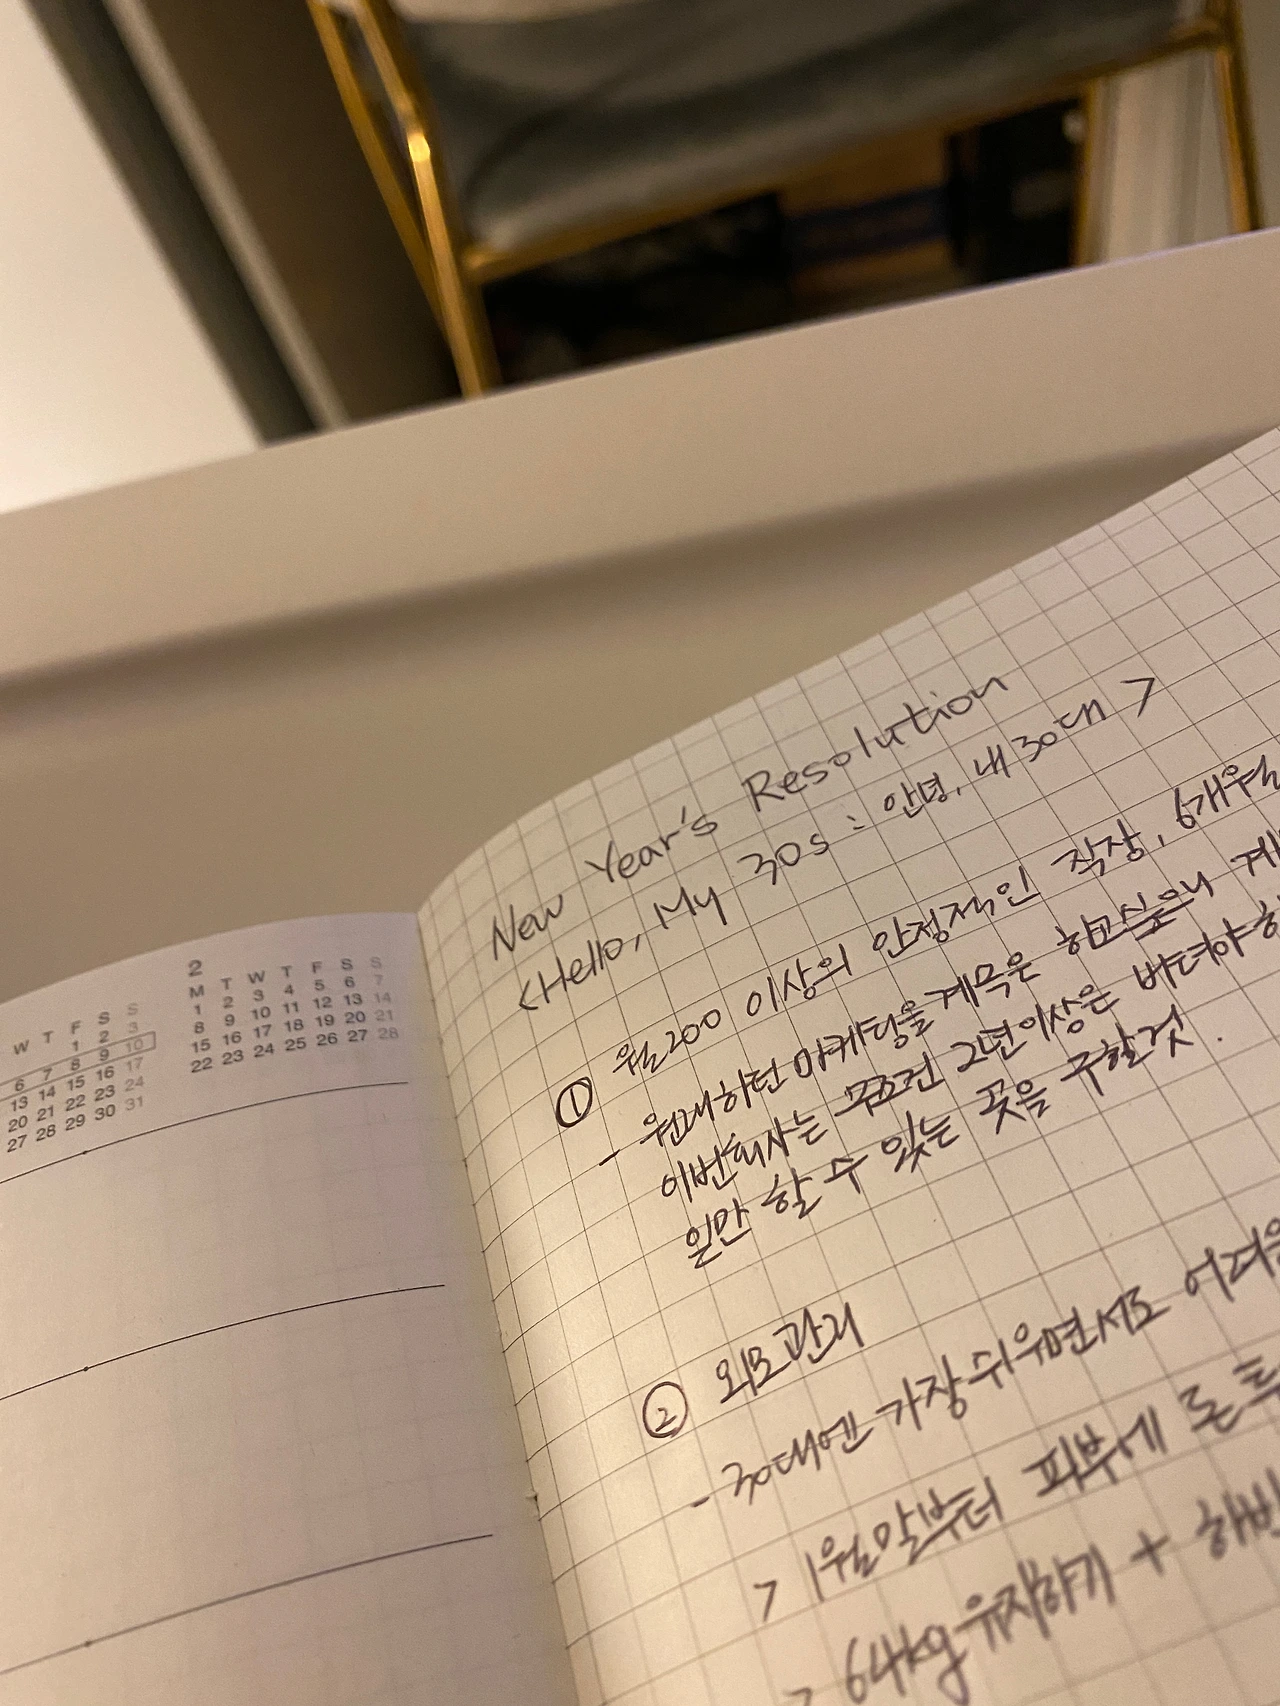 W T F S S
1 2 3
6 7 8 9 10
13 14 15 16 17
20 21 22 23 24
27 28 29 30 31
2
M T W T F S S
1 2 3 4 5 6 7
8 9 10 11 12 13 14
15 16 17 18 19 20 21
22 23 24 25 26 27 28
New Year's Resolution
<Hello, My 30s : 안녕, 내 30대 >
① 월 200 이상의 안정적인 직장, 6개월
- 원래하던 마케팅을 계속은 하고싶으니 계
이번회사는 무조건 2년이상은 버텨야 하
일만 할 수 있는 곳을 구할것.
② 외모관리
- 30대엔 가장 쉬우면서도 어려운
> 1월말부터 피부에 돈 투
> 64kg 유지하기 +